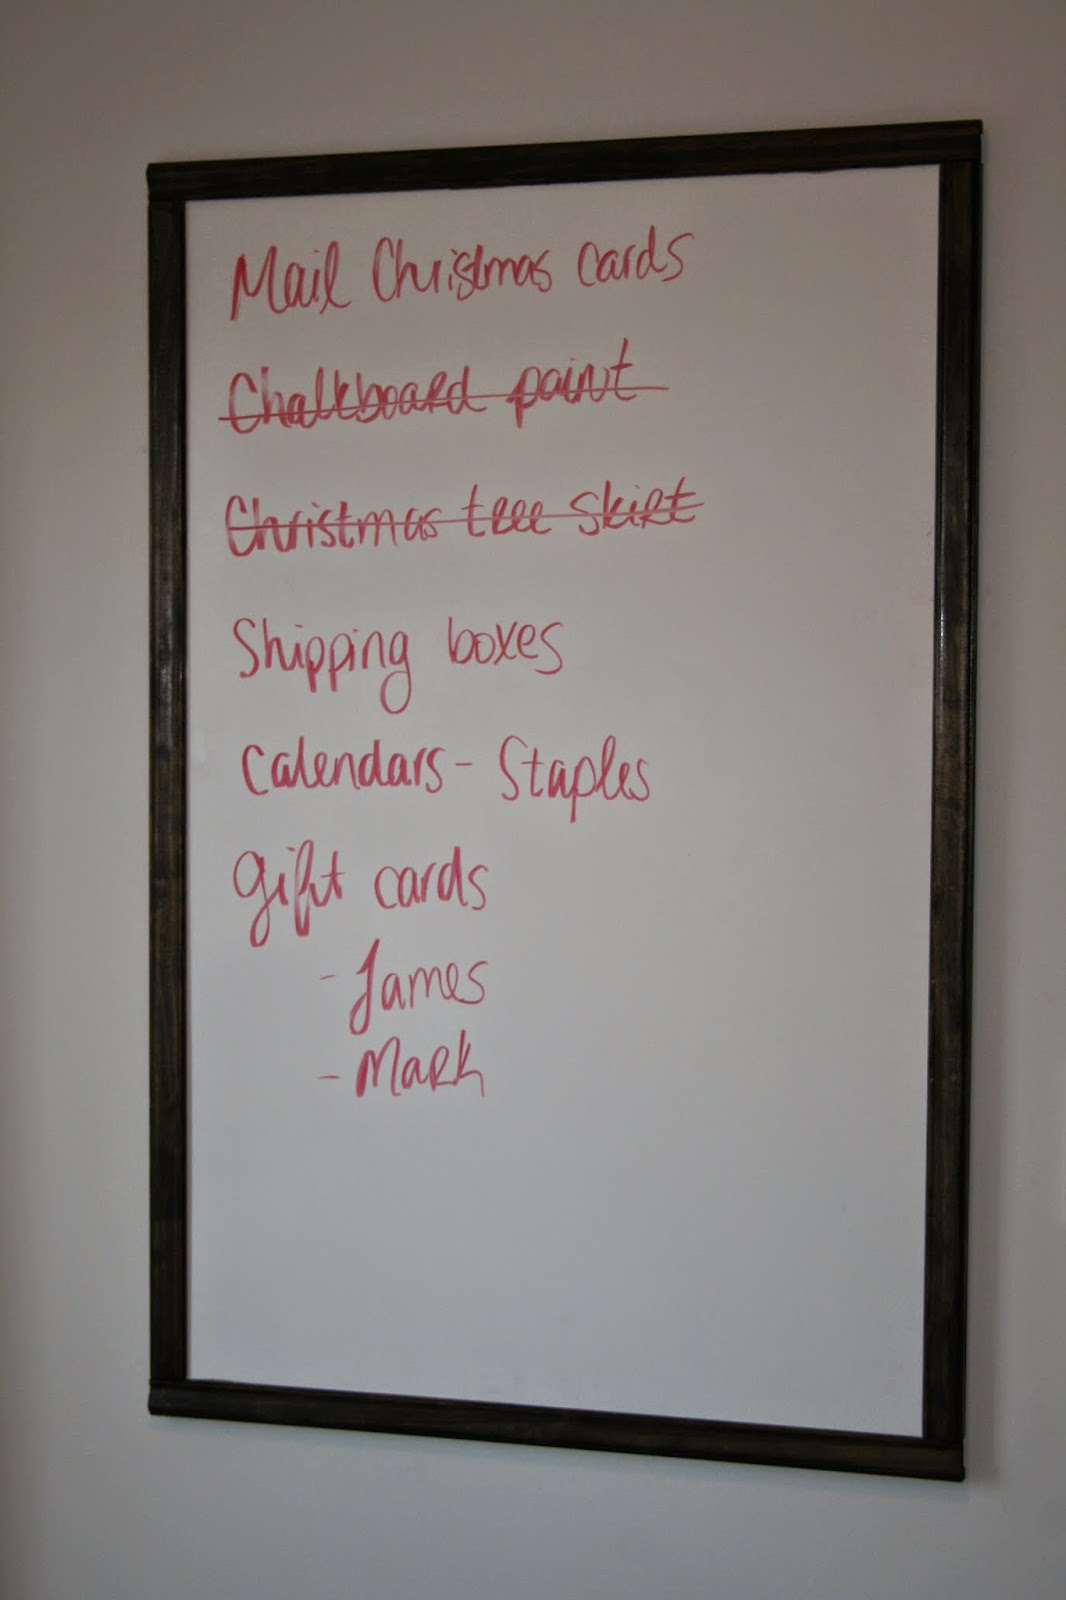 Mail Christmas cards
Chalkboard paint
Christmas tree skirt
Shipping boxes
Calendars - Staples
gift cards
- James
- Mark